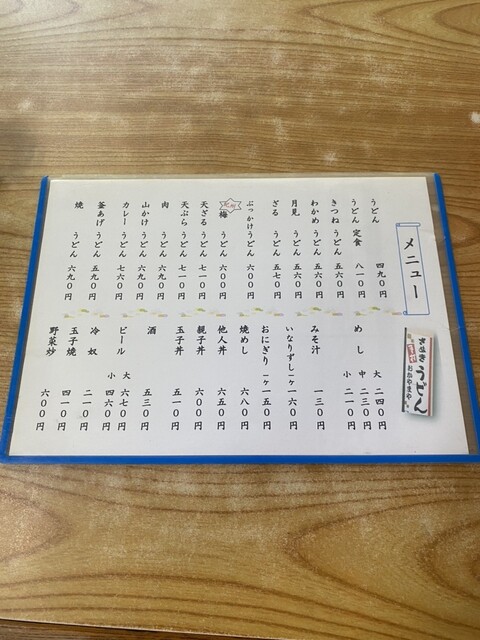 メニュー
さぬき
うどん
おかやまや
うどん 四九〇円
うどん定食 八一〇円
きつねうどん 五六〇円
わかめうどん 五六〇円
月見うどん 五六〇円
ざるうどん 五七〇円
ぶっかけうどん 六〇〇円
梅うどん 六〇〇円
天ざるうどん 七一〇円
天ぷらうどん 七一〇円
肉うどん 六九〇円
山かけうどん 六九〇円
カレーうどん 七六〇円
釜あげうどん 五九〇円
焼うどん 六九〇円
めし 大 二四〇円
中 二三〇円
小 二一〇円
みそ汁 一三〇円
いなりずし一ヶ 一六〇円
おにぎり一ヶ 一五〇円
焼めし 六八〇円
他人丼 六五〇円
親子丼 六〇〇円
玉子丼 五一〇円
酒 五三〇円
ビール 大 六七〇円
小 四六〇円
冷奴 二一〇円
玉子焼 四一〇円
野菜炒 六〇〇円